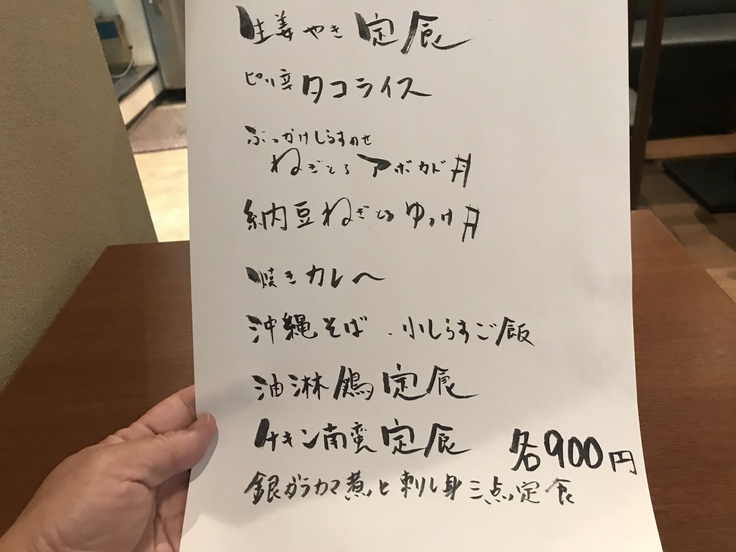 生姜やき定食
ピリ辛タコライス
ぶっかけしらすのせ
ねぎとろアボカド丼
納豆ねぎとろゆっけ丼
焼きカレー
沖縄そば・小しらすご飯
油淋鶏定食
チキン南蛮定食
各900円
銀ガラカマ煮と刺し身三点定食